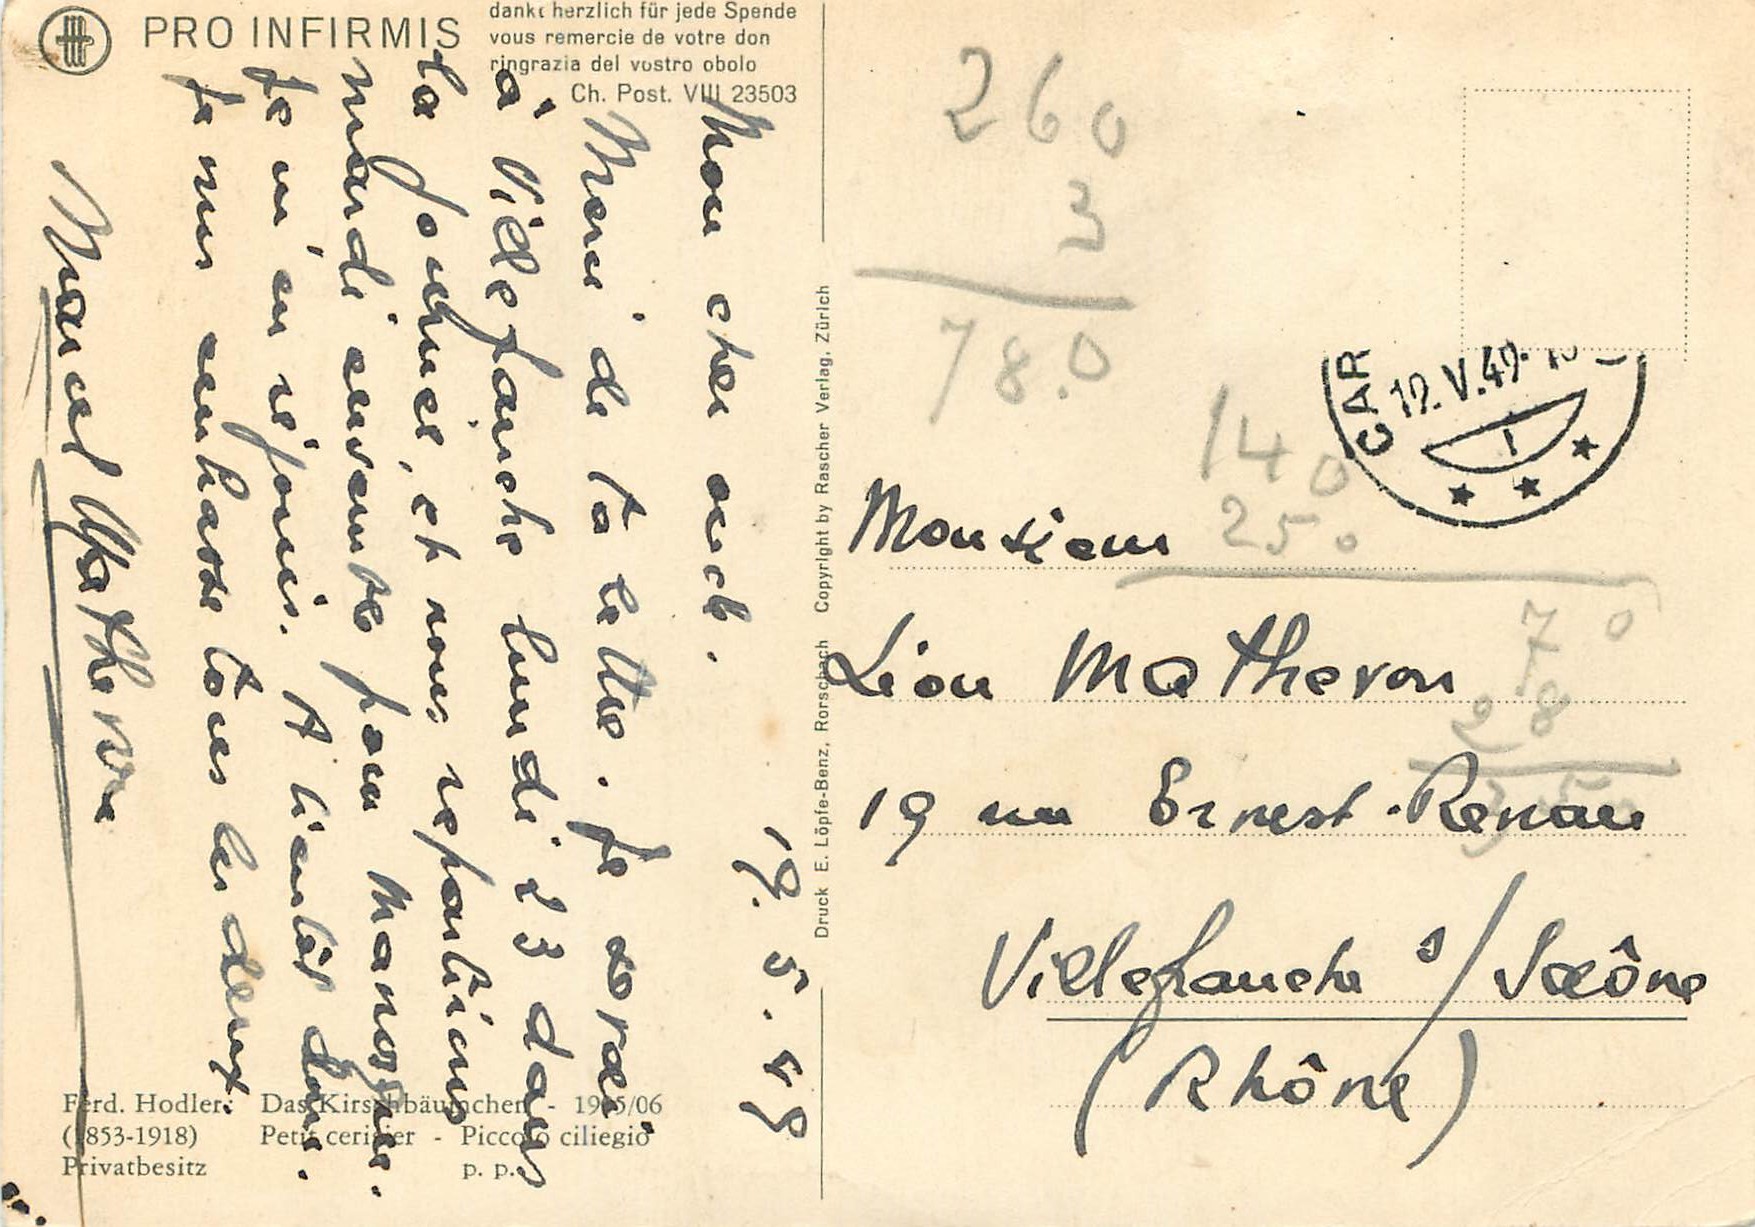 PRO INFIRMIS
dankt herzlich für jede Spende
vous remercie de votre don
ringrazia del vostro obolo
Ch. Post. VIII 23503
19. 5. 49
Mon cher oncle.
Merci de ta lettre. Je serai
à Villefranche lundi 23 dans
la journée, et nous repartions
mardi suivante pour Manosque.
Je m'en réjouis. A bientôt donc.
Je vous embrasse tous les deux.
Marcel Matheron
Ferd. Hodler: Das Kirschbäumchen - 1905/06
(1853-1918) Petit cerisier - Piccolo ciliegio
Privatbesitz p. p.
Druck E. Löpfe-Benz, Rorschach Copyright by Rascher Verlag, Zürich
260
3
78.0
140
250
70
28
CAR
19. V. 49
Monsieur
Léon Matheron
19 rue Ernest-Renan
Villefranche s/ Saône
(Rhône)